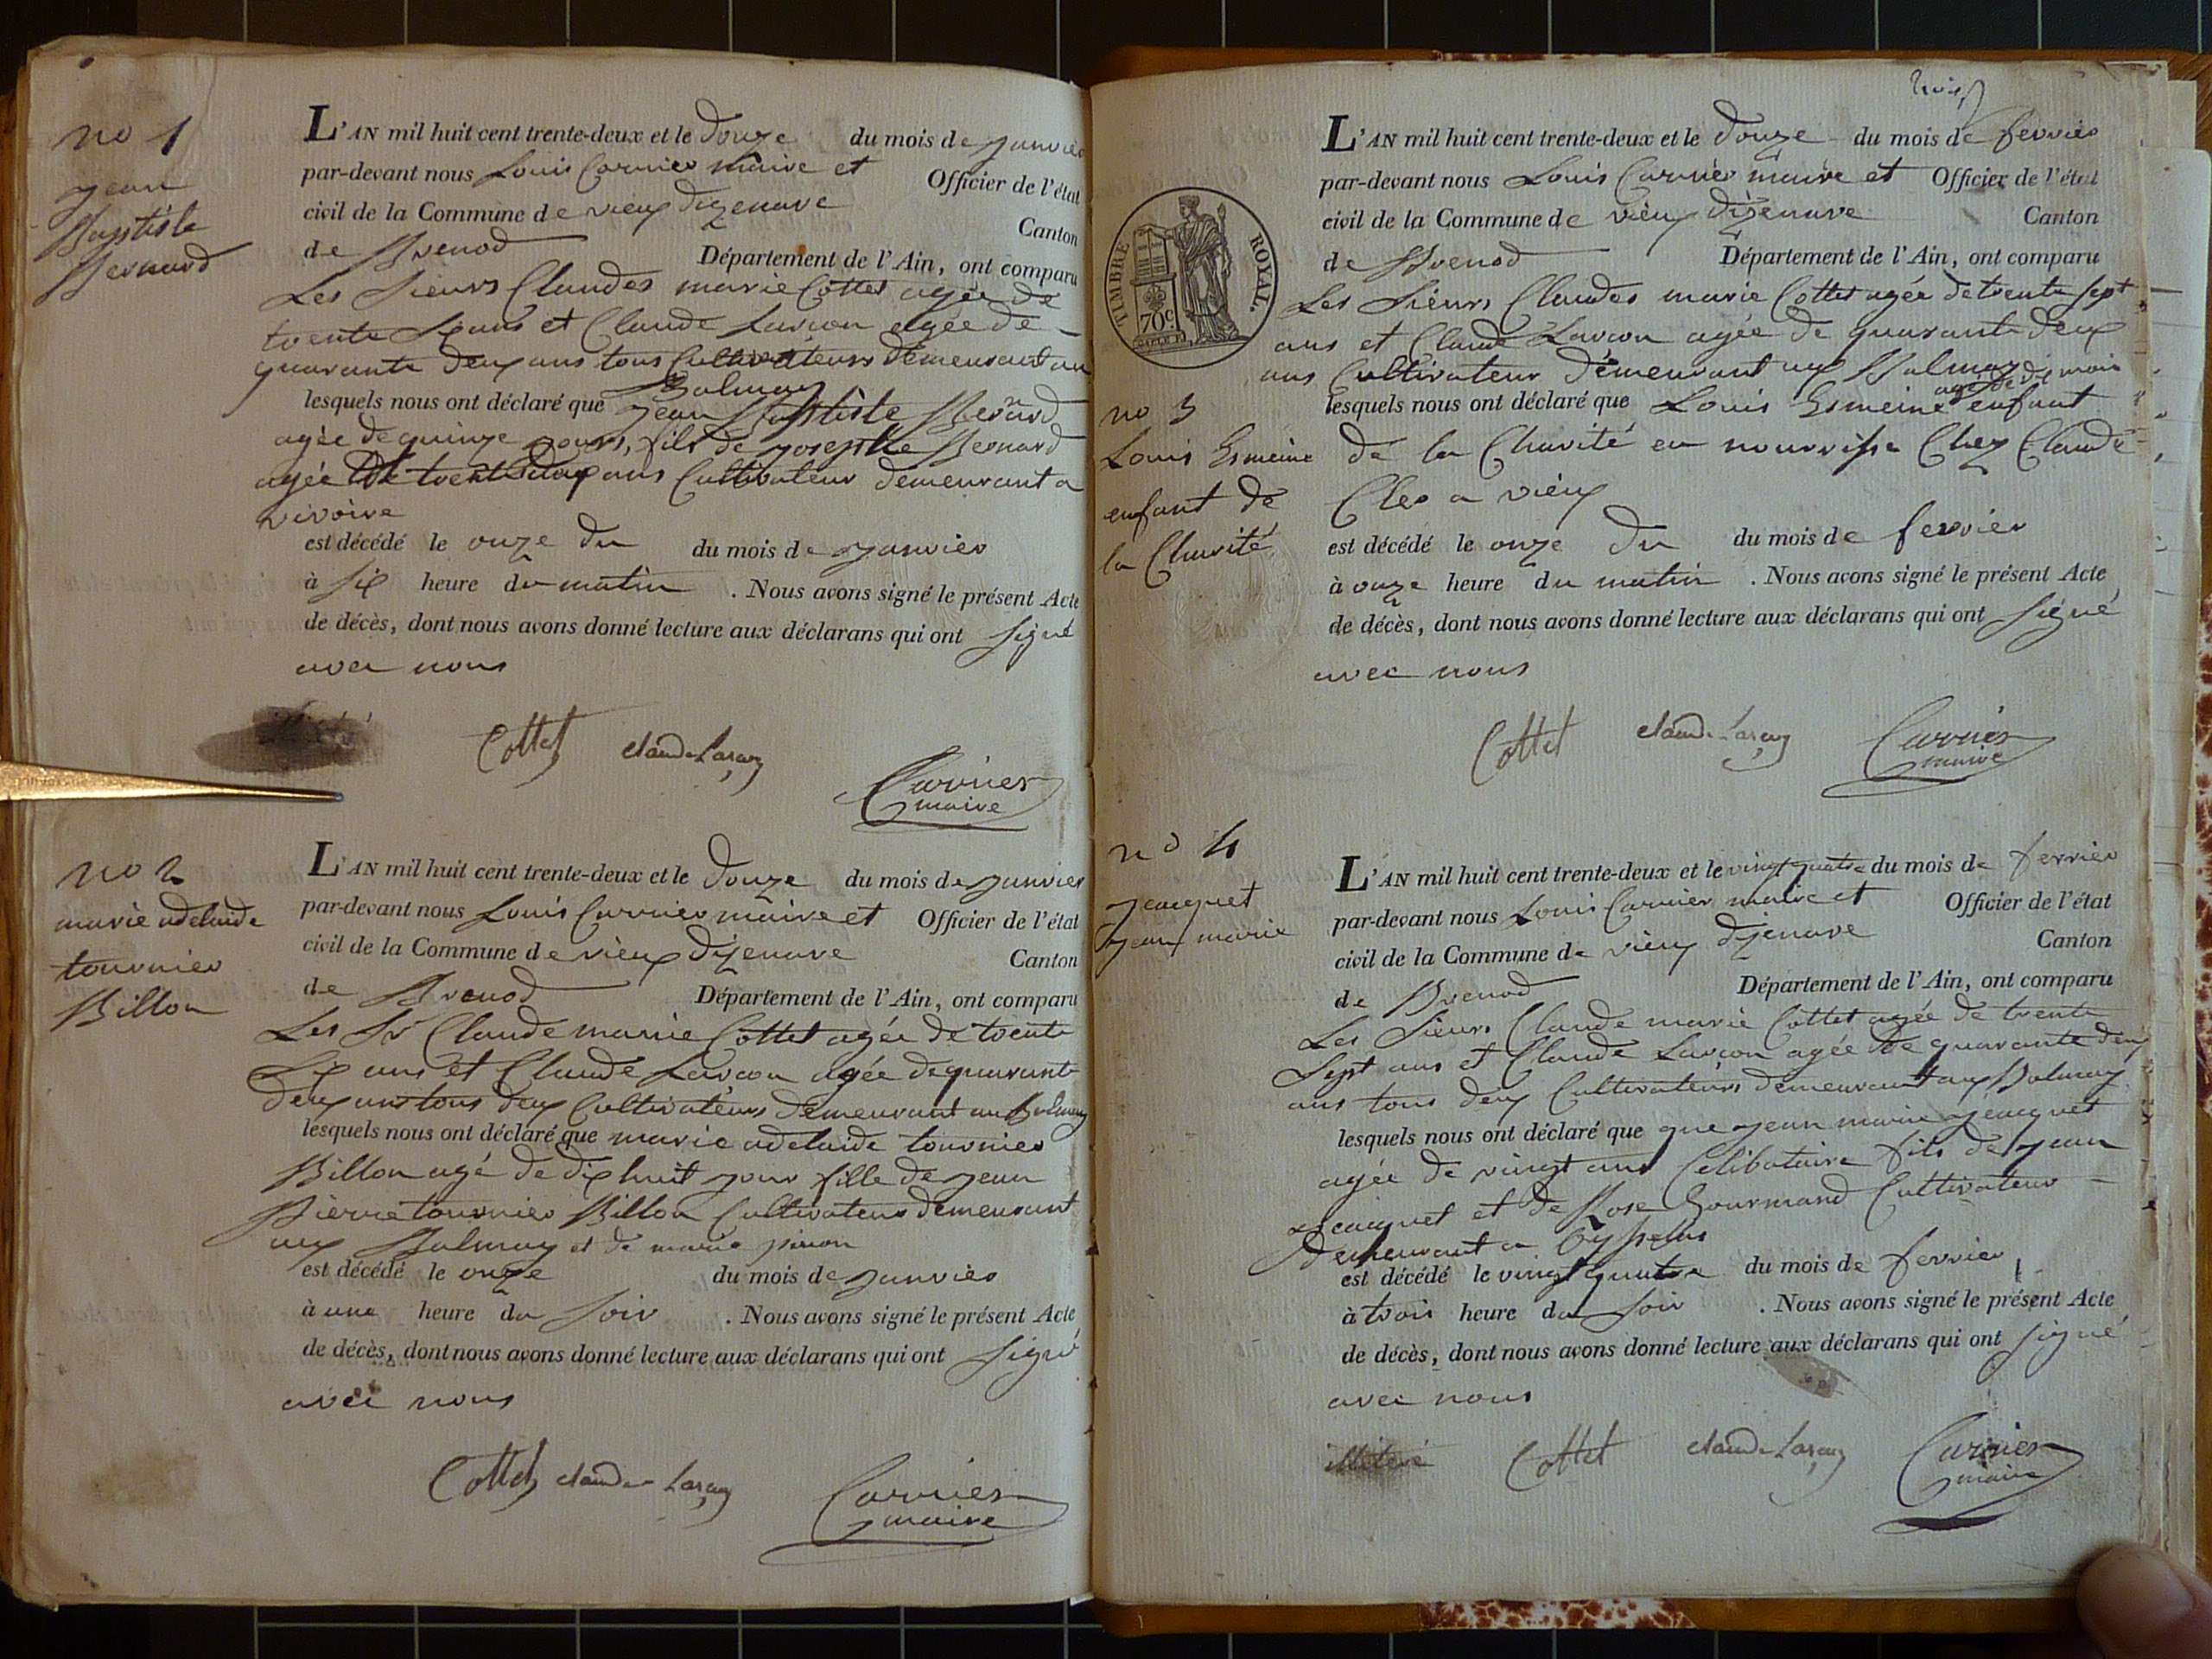 no 1
jean
Baptiste
Bernard
L'AN mil huit cent trente-deux et le douze du mois de janvier
par-devant nous Louis Carrier maire et Officier de l'état
civil de la Commune de vieux dizenave
Canton
de Brenod Département de l'Ain, ont comparu
Les Sieurs Claudes marie Cottet agée de
trente Six ans et Claude Larcon agée de
quarante deux ans tous Cultivateurs demeurant au
Balmay
lesquels nous ont déclaré que jean Baptiste Bernard
agée de quinze jours, fils de josephte Bernard
agée de trente deux ans Cultivateur demeurant a
vivoire
est décédé le onze du du mois de janvier
à Six heure du matin . Nous avons signé le présent Acte
de décès, dont nous avons donné lecture aux déclarans qui ont Signé
avec nous
Cottet claude Larçon
Carrier
maire
no 2
marie adelaide
tournier
Billon
L'AN mil huit cent trente-deux et le douze du mois de janvier
par-devant nous Louis Carrier maire et Officier de l'état
civil de la Commune de vieux dizenave Canton
de Brenod Département de l'Ain, ont comparu
Les Sr Claude marie Cottet agée de trente
Six ans et Claude Larcon agée de quarante
deux ans tous deux Cultivateurs demeurant au Balmay
lesquels nous ont déclaré que marie adelaide tournier
Billon agé de dix huit jour fille de jean
Pierre tournier Billon Cultivateur demeurant
aux Balmay et de marie
est décédé le onze du mois de janvier
à une heure du Soir . Nous avons signé le présent Acte
de décès, dont nous avons donné lecture aux déclarans qui ont Signé
avec nous
Cottet claude Larçon
Carrier
maire
L'AN mil huit cent trente-deux et le douze du mois de fevrier
par-devant nous Louis Carrier maire et Officier de l'état
civil de la Commune de vieux dizenave Canton
de Brenod Département de l'Ain, ont comparu
TIMBRE ROYAL.
70c
Les Sieurs Claudes marie Cottet agée de trente sept
ans et Claude Larcon agée de quarante deux
ans Cultivateur demeurant aux Balmay
agé de dix mois
lesquels nous ont déclaré que Louis Esmeine enfant
de la Charité en nourrisse Chez Claude
Cler a vieux
no 3
Louis Esmeine
enfant de
la Charité
est décédé le onze du du mois de fevrier
à onze heure du matin . Nous avons signé le présent Acte
de décès, dont nous avons donné lecture aux déclarans qui ont Signé
avec nous
Cottet claude Larçon Carrier
maire
no 4
jeacquet
jean marie
L'AN mil huit cent trente-deux et le vingt quatre du mois de fevrier
par-devant nous Louis Carrier maire et Officier de l'état
civil de la Commune de vieux dizenave Canton
de Brenod Département de l'Ain, ont comparu
Les Sieurs Claude marie Cottet agée de trente
Sept ans et Claude Larcon agée de quarante deux
ans tous deux Cultivateurs demeurant aux Balmay
lesquels nous ont déclaré que que jean marie jeacquet
agée de vingt ans Celibataire fils de jean
jeacquet et de Rose Gourmand Cultivateur
demeurant a
est décédé le vingt quatre du mois de fevrier
à trois heure du Soir . Nous avons signé le présent Acte
de décès, dont nous avons donné lecture aux déclarans qui ont signé
avec nous
Cottet claude Larçon Carrier
maire